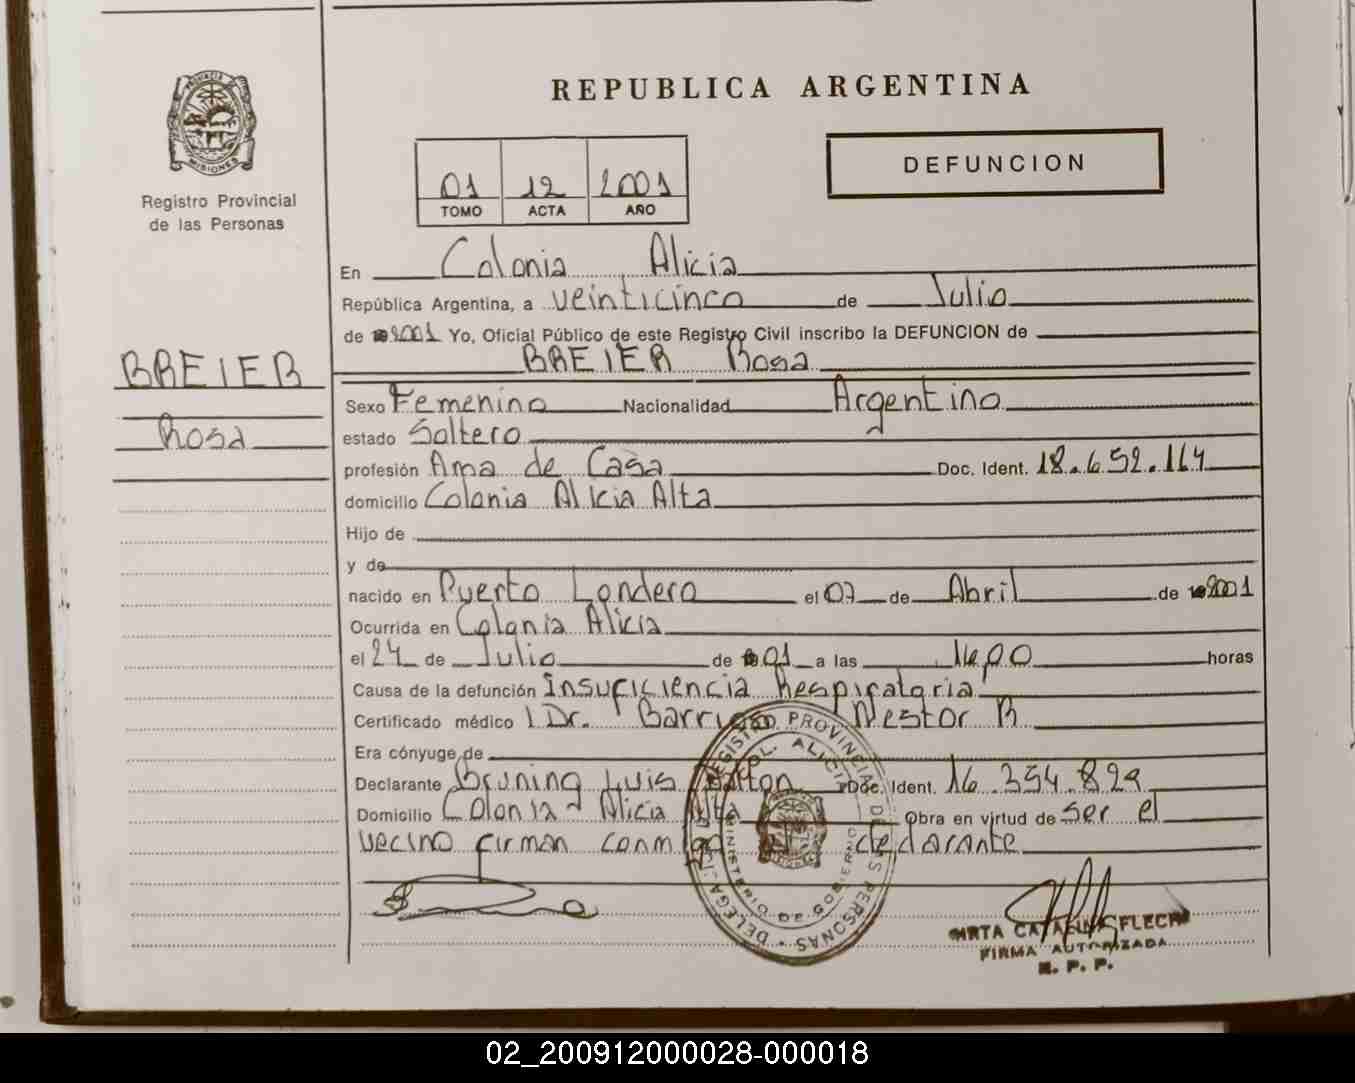 PROVINCIA DE
MISIONES
Registro Provincial
de las Personas
BREIER
Rosa
REPUBLICA ARGENTINA
01 12 2001
TOMO ACTA AÑO
DEFUNCION
En Colonia Alicia
República Argentina, a veinticinco de Julio
de 2001 Yo, Oficial Público de este Registro Civil inscribo la DEFUNCION de
BREIER Rosa
Sexo Femenino Nacionalidad Argentina
estado Soltero
profesión Ama de Casa Doc. Ident. 18.652.164
domicilio Colonia Alicia Alta
Hijo de
y de
nacido en Puerto Londero el 07 de Abril de 2001
Ocurrida en Colonia Alicia
el 24 de Julio de 01 a las horas
Causa de la defunción Insuficiencia Respiratoria
Certificado médico Dr. Nestor R
Era cónyuge de
Declarante Bruning Luis Doc. Ident. 16.354.829
Domicilio Colonia Alicia Alta Obra en virtud de ser el
vecino firman conmigo declarante
REGISTRO PROVINCIAL DE LAS PERSONAS
COL. ALICIA
MINISTERIO DE GOBIERNO
FIRMA AUTORIZADA
R. P. P.
02_200912000028-000018